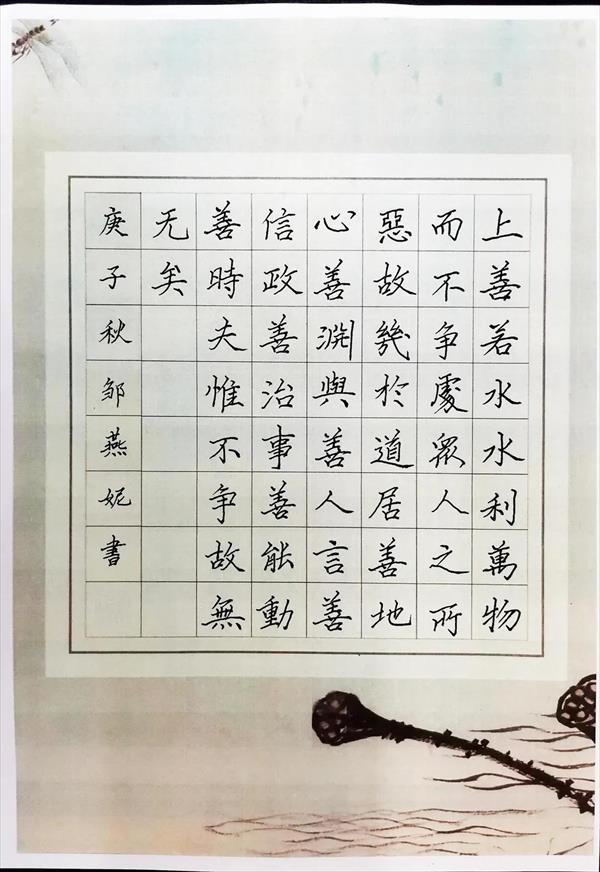 上善若水水利萬物
而不争處眾人之所
惡故幾於道居善地
心善淵與善人言善
信政善治事善能動
善時夫惟不争故無
无矣
庚子秋邹燕妮書